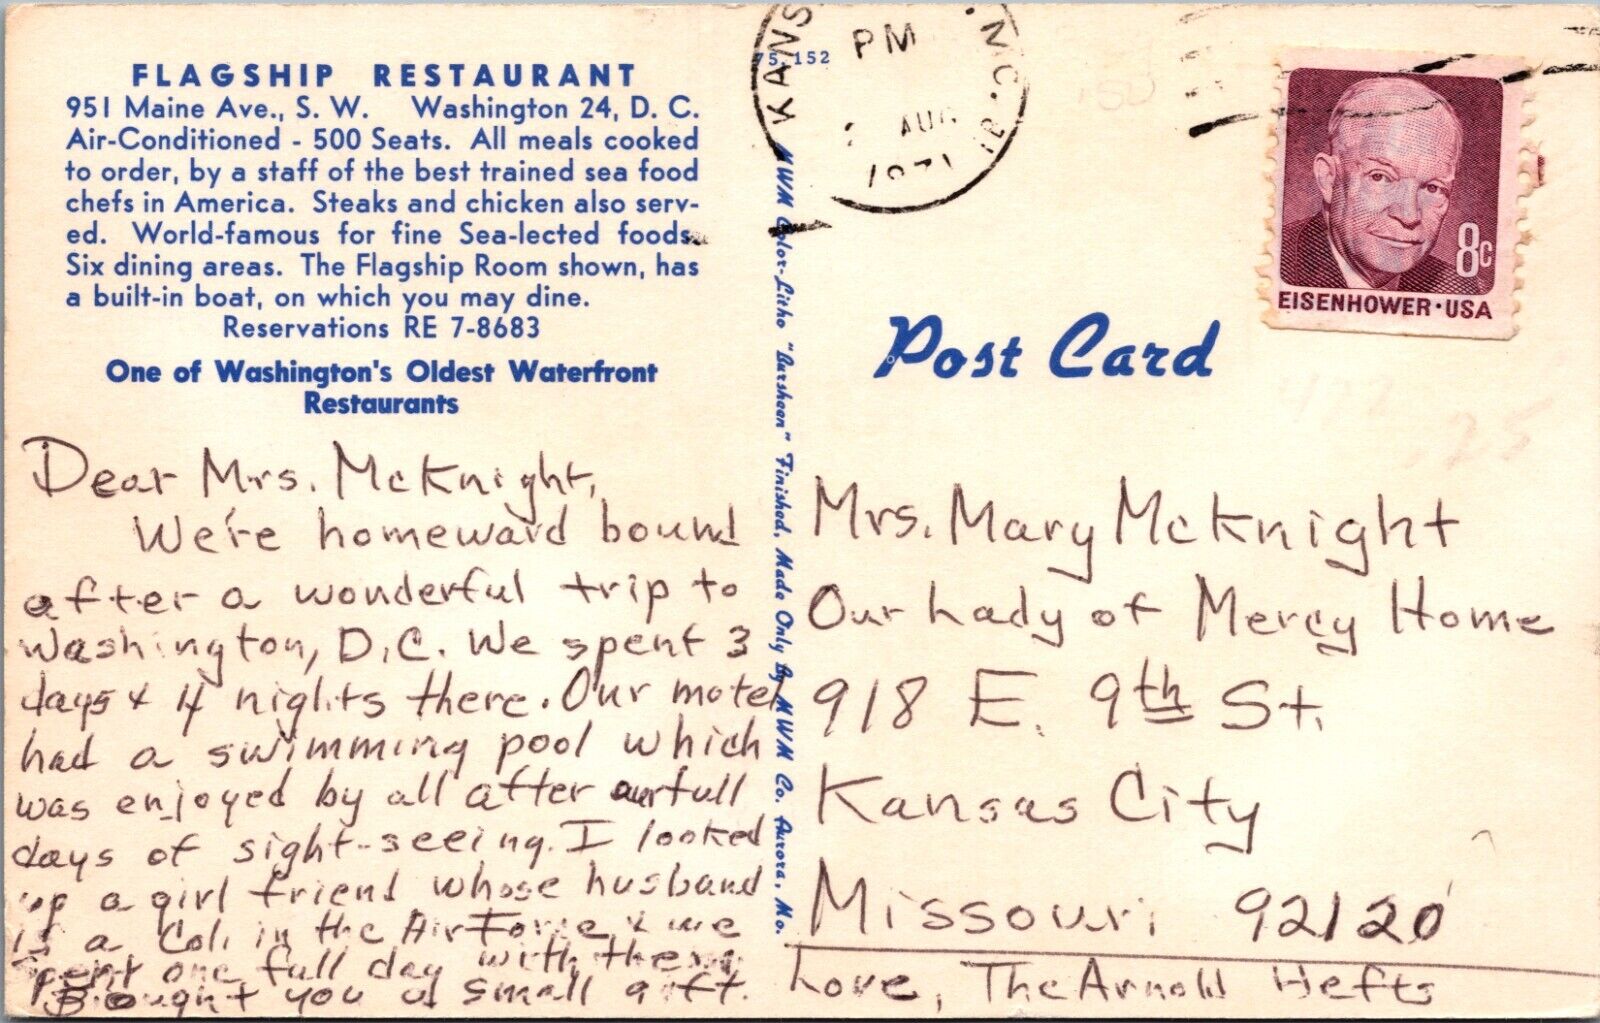 FLAGSHIP RESTAURANT
951 Maine Ave., S. W. Washington 24, D. C.
Air-Conditioned - 500 Seats. All meals cooked
to order, by a staff of the best trained sea food
chefs in America. Steaks and chicken also serv-
ed. World-famous for fine Sea-lected foods.
Six dining areas. The Flagship Room shown, has
a built-in boat, on which you may dine.
Reservations RE 7-8683
One of Washington's Oldest Waterfront
Restaurants
Dear Mrs. McKnight,
We're homeward bound
after a wonderful trip to
Washington, D.C. We spent 3
days & 4 nights there. Our motel
had a swimming pool which
was enjoyed by all after our full
days of sight-seeing. I looked
up a girl friend whose husband
is a Col. in the Air Force & we
spent one full day with them.
Bought you a small gift.
75,152
MWM Color-Litho "Bursheen" Finished, Made Only By MWM Co. Aurora, Mo.
KANS
MO.
PM
AUG
1971
8c
EISENHOWER·USA
Post Card
.25
Mrs. Mary McKnight
Our Lady of Mercy Home
918 E. 9th St.
Kansas City
Missouri 92120
Love, The Arnold Hefts